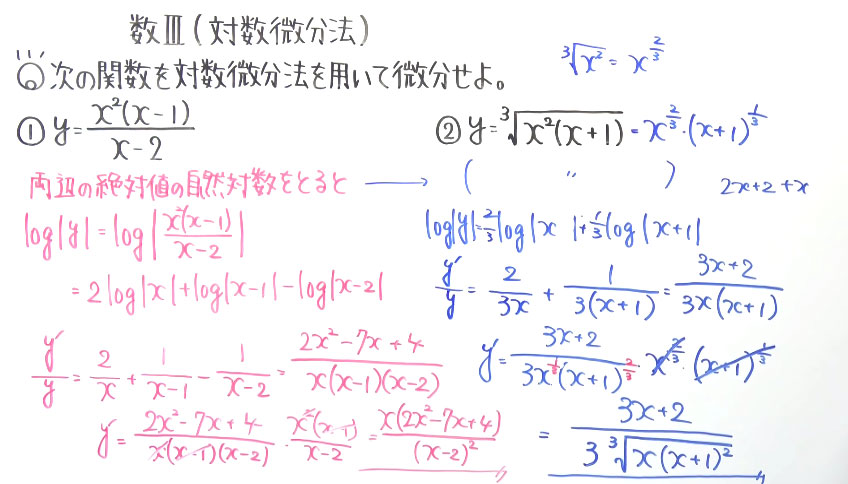 数Ⅲ(対数微分法)
次の関数を対数微分法を用いて微分せよ。
∛x² = x^(2/3)
① y = x²(x-1)/(x-2)
両辺の絶対値の自然対数をとると
log|y| = log|x²(x-1)/(x-2)|
= 2log|x| + log|x-1| - log|x-2|
y'/y = 2/x + 1/(x-1) - 1/(x-2) = (2x²-7x+4)/(x(x-1)(x-2))
y' = (2x²-7x+4)/(x(x-1)(x-2)) · x²(x-1)/(x-2) = x(2x²-7x+4)/(x-2)²
② y = ∛(x²(x+1)) = x^(2/3)·(x+1)^(1/3)
→ ( 〃 )
2x+2+x
log|y| = 2/3 log|x| + 1/3 log|x+1|
y'/y = 2/(3x) + 1/(3(x+1)) = (3x+2)/(3x(x+1))
y' = (3x+2)/(3x^(1/3)(x+1)^(2/3)) · x^(2/3) · (x+1)^(1/3)
= (3x+2)/(3∛(x(x+1)²))